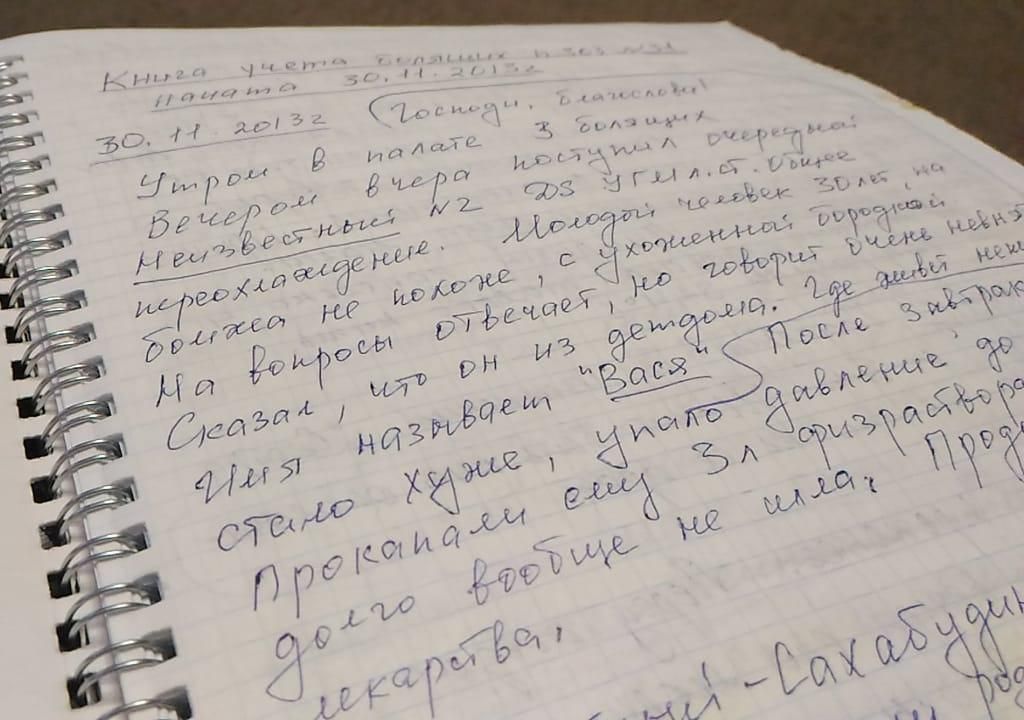 Книга учета болящих
начата 30.11.2013г
30.11.2013г (Господи, благослови!
Утром в палате 3 болящих
Вечером вчера поступил очередной
Неизвестный №2 DS УГМ л.ст. Общее
переохлаждение. Молодой человек 30 лет, на
бомжа не похоже, с ухоженной бородкой
На вопросы отвечает, но говорит очень
Сказал, что он из детдома. Где живёт
Имя называет "Вася" После
стало хуже, упало давление до
Прокапали ему 3л физраствора
долго вообще не шла.
лекарства.